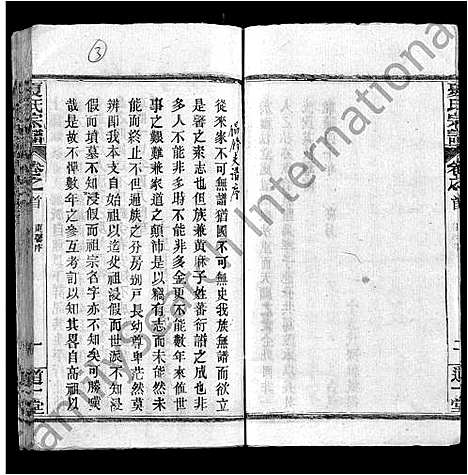 ③
夏氏宗譜
卷之首
東譜序
一
道一堂
偏修支譜序
從來家不可無譜猶國不可無史我族無譜而欲立
是譜之素志也但族兼黃麻子姓蕃衍譜之成也非
多人不能非多時不能非多金更不能數年來值世
事之艱難兼家道之顛沛是以竊有志而未能然未
能而終止不但通族之分房別戶長幼尊卑茫然莫
辨即我本支自始祖以迄父祖浸假而世派不知浸
假而墳墓不知浸假而祖宗名字亦不知矣可勝歎
哉是故不憚數年之參互考訂以知其畧自高祖以
夏氏宗譜
卷之首
二
道一堂
FamilySearch International